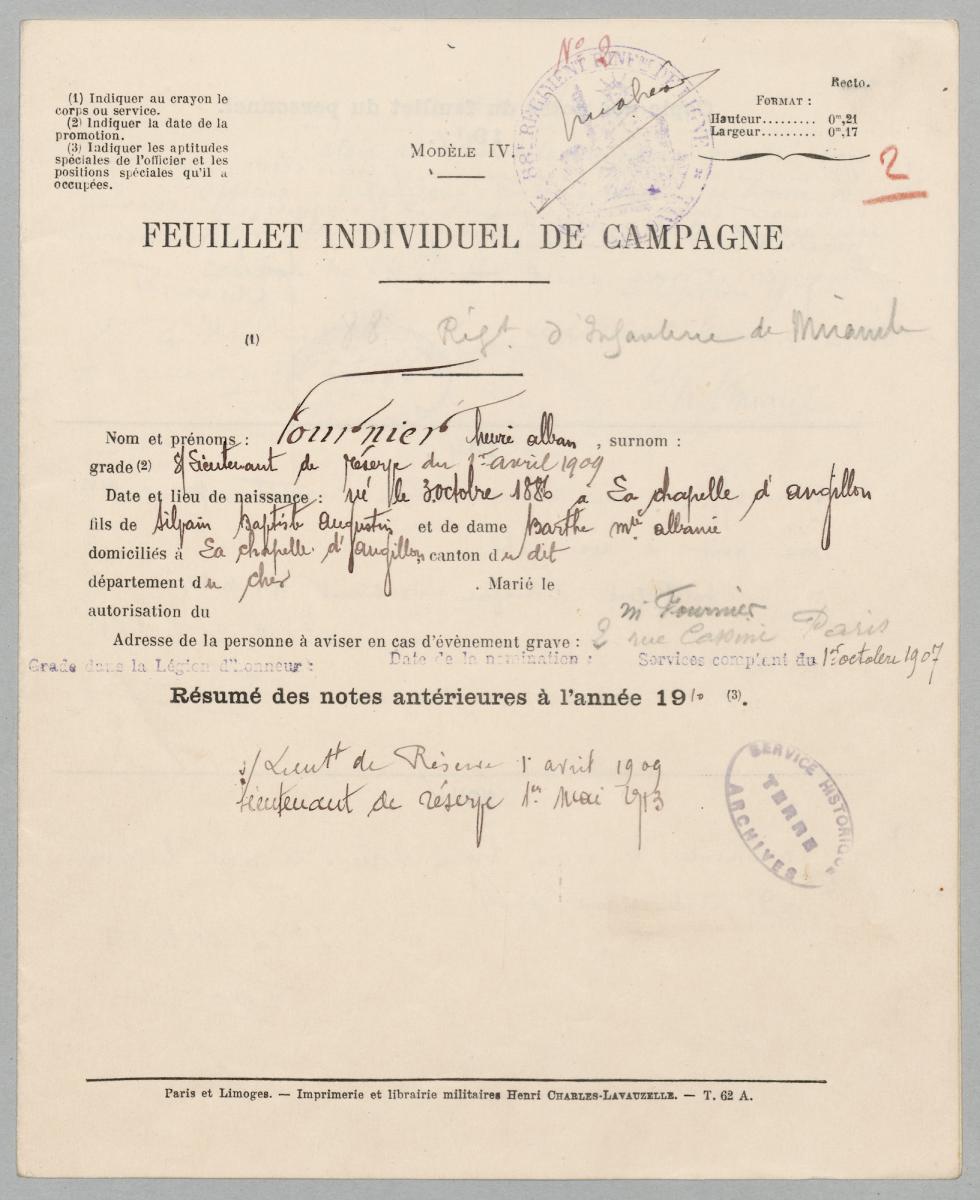 (1) Indiquer au crayon le
corps ou service.
(2) Indiquer la date de la
promotion.
(3) Indiquer les aptitudes
spéciales de l'officier et les
positions spéciales qu'il a
occupées.
No 2
88e RÉGIMENT LIGNE
MODÈLE IV.
Recto.
FORMAT :
Hauteur......... 0m,21
Largeur......... 0m,17
2
FEUILLET INDIVIDUEL DE CAMPAGNE
(1) 88 Régt d'Infanterie de Mirande
Nom et prénoms : Fournier henri alban , surnom :
grade (2) s/Lieutenant de réserve du 1er avril 1909
Date et lieu de naissance : né le 3 octobre 1886 a La chapelle d'angillon
fils de Silvain Baptiste augustin et de dame Barthe mie albanie
domiciliés à La chapelle d'angillon canton du dit
département du cher . Marié le
autorisation du
Adresse de la personne à aviser en cas d'évènement grave : mr Fournier
2 rue Cassini Paris
Grade dans la Légion d'Honneur : Date de la nomination : Services comptant du 1er octobre 1907
Résumé des notes antérieures à l'année 1910 (3).
s/Lieutt de Réserve 1 avril 1909
Lieutenant de réserve 1er Mai 1913
SERVICE HISTORIQUE
TERRE
ARCHIVES
Paris et Limoges. — Imprimerie et librairie militaires Henri CHARLES-LAVAUZELLE. — T. 62 A.